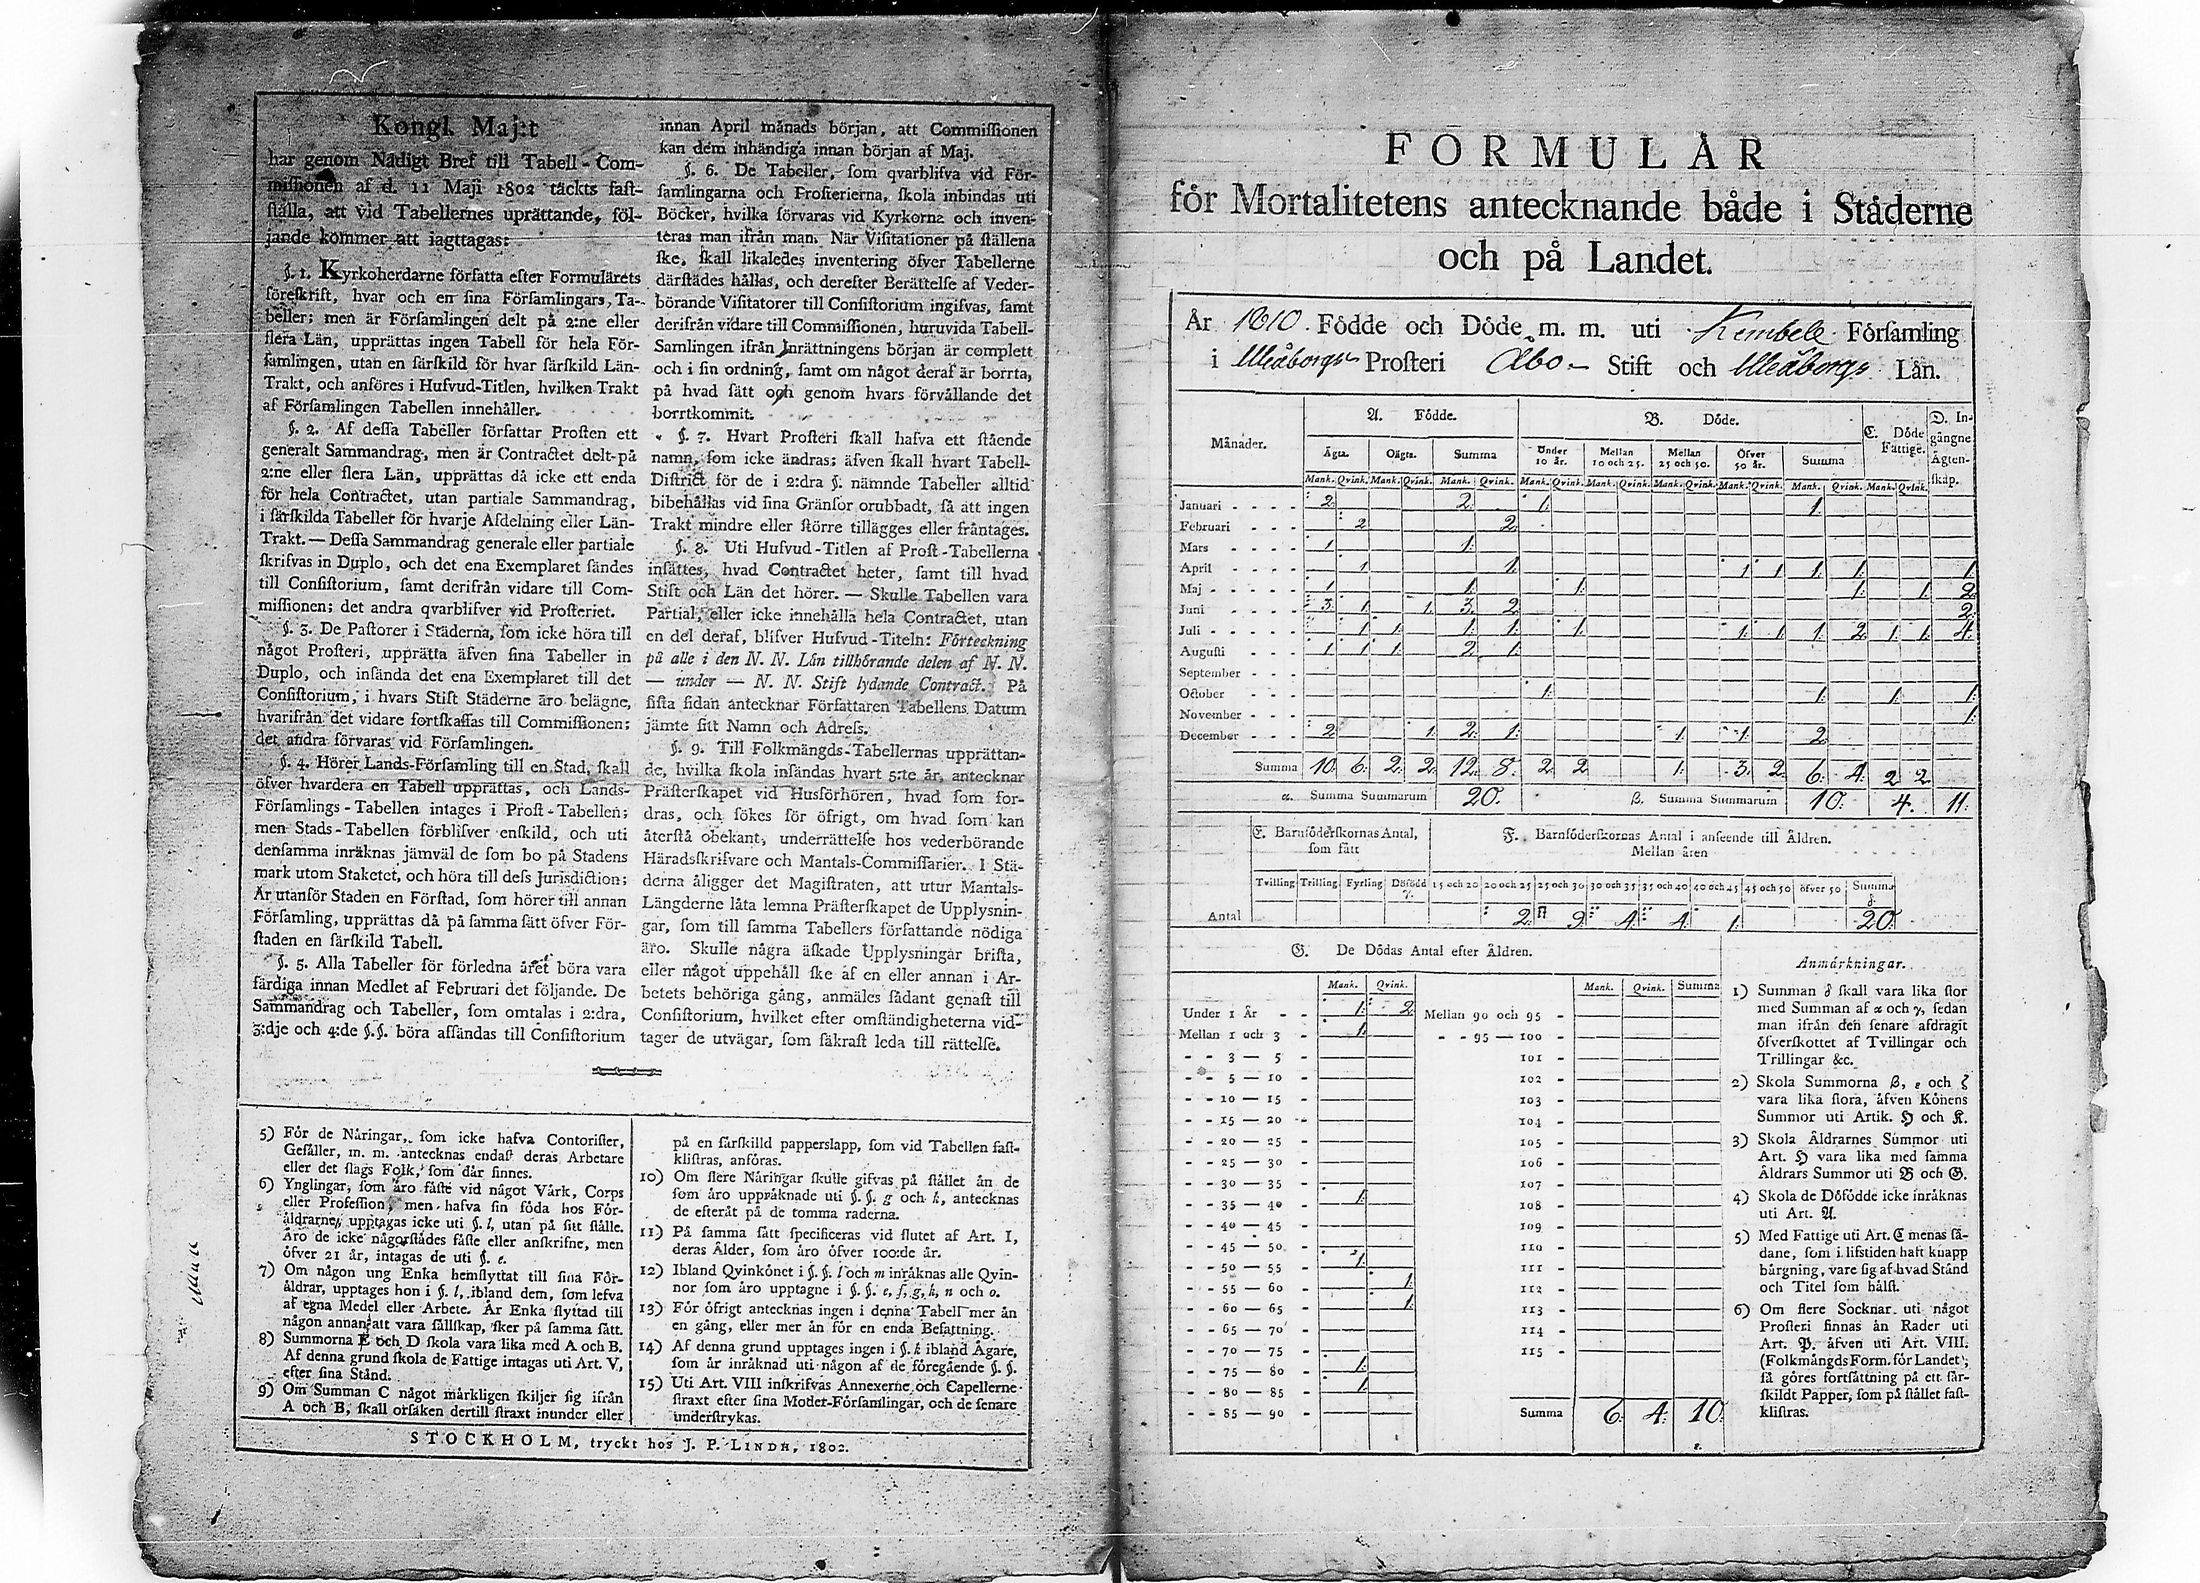 Kongl. Maj:t
har genom Nådigt Bref till Tabell-Com-
missionen af d. 11 Maji 1802 täckts fast-
ställa, att vid Tabellernes uprättande, föl-
jande kommer att iagttagas:
§. 1. Kyrkoherdarne författa efter Formulärets
föreskrift, hvar och en sina Församlingars, Ta-
beller; men är Församlingen delt på 2:ne eller
flera Län, upprättas ingen Tabell för hela För-
samlingen, utan en särskild för hvar särskild Län-
Trakt, och anföres i Hufvud-Titlen, hvilken Trakt
af Församlingen Tabellen innehåller.
§. 2. Af dessa Tabeller författar Prosten ett
generalt Sammandrag, men är Contractet delt på
2:ne eller flera Län, upprättas då icke ett enda
för hela Contractet, utan partiale Sammandrag,
i särskilda Tabeller för hvarje Afdelning eller Län-
Trakt. — Dessa Sammandrag generale eller partiale
skrifvas in Duplo, och det ena Exemplaret sändes
till Consistorium, samt derifrån vidare till Com-
missionen; det andra qvarblifver vid Prosteriet.
§. 3. De Pastorer i Städerna, som icke höra till
något Prosteri, upprätta äfven sina Tabeller in
Duplo, och insända det ena Exemplaret till det
Consistorium, i hvars Stift Städerne äro belägne,
hvarifrån det vidare fortskaffas till Commissionen;
det andra förvaras vid Församlingen.
§. 4. Hörer Lands-Församling till en Stad, skall
öfver hvardera en Tabell upprättas, och Lands-
Församlings-Tabellen intages i Prost-Tabellen;
men Stads-Tabellen förblifver enskild, och uti
densamma inräknas jämväl de som bo på Stadens
mark utom Staketet, och höra till dess Jurisdiction;
Är utanför Staden en Förstad, som hörer till annan
Församling, upprättas då på samma sätt öfver För-
staden en särskild Tabell.
§. 5. Alla Tabeller för förledna året böra vara
färdiga innan Medlet af Februari det följande. De
Sammandrag och Tabeller, som omtalas i 2:dra,
3:dje och 4:de §.§. böra afsändas till Consistorium
innan April månads början, att Commissionen
kan dem inhändiga innan början af Maj.
§. 6. De Tabeller, som qvarblifva vid För-
samlingarna och Prosterierna, skola inbindas uti
Böcker, hvilka förvaras vid Kyrkorna och inven-
teras man ifrån man. När Visitationer på ställena
ske, skall likaledes inventering öfver Tabellerne
därstädes hållas, och derefter Berättelse af Veder-
börande Visitatorer till Consistorium ingifvas, samt
derifrån vidare till Commissionen, huruvida Tabell-
Samlingen ifrån Inrättningens början är complett
och i sin ordning, samt om något deraf är borrta,
på hvad sätt och genom hvars förvållande det
borrtkommit.
§. 7. Hvart Prosteri skall hafva ett stående
namn, som icke ändras; äfven skall hvart Tabell-
District för de i 2:dra §. nämnde Tabeller alltid
bibehållas vid sina Gränsor orubbadt, så att ingen
Trakt mindre eller större tillägges eller fråntages.
§. 8. Uti Hufvud-Titlen af Prost-Tabellerna
insättes, hvad Contractet heter, samt till hvad
Stift och Län det hörer. — Skulle Tabellen vara
Partial, eller icke innehålla hela Contractet, utan
en del deraf, blifver Hufvud-Titeln: Förteckning
på alle i den N. N. Län tillhörande delen af N. N.
— under — N. N. Stift lydande Contract. På
sista sidan antecknar Författaren Tabellens Datum
jämte sitt Namn och Adress.
§. 9. Till Folkmängds-Tabellernas upprättan-
de, hvilka skola insändas hvart 5:te år, antecknar
Prästerskapet vid Husförhören, hvad som for-
dras, och sökes för öfrigt, om hvad som kan
återstå obekant, underrättelse hos vederbörande
Häradsskrifvare och Mantals-Commissarier. I Stä-
derna åligger det Magistraten, att utur Mantals-
Längderne låta lemna Prästerskapet de Upplysnin-
gar, som till samma Tabellers författande nödiga
äro. Skulle några äskade Upplysningar brista,
eller något uppehåll ske af en eller annan i Ar-
betets behöriga gång, anmäles sådant genast till
Consistorium, hvilket efter omständigheterna vid-
tager de utvägar, som säkrast leda till rättelse.
5) För de Näringar, som icke hafva Contorister,
Gesäller, m. m. antecknas endast deras Arbetare
eller det slags Folk, som där finnes.
6) Ynglingar, som äro fäste vid något Värk, Corps
eller Profession, men hafva sin föda hos För-
äldrarne, upptagas icke uti §. l, utan på sitt ställe.
Äro de icke någorstädes fäste eller anskrifne, men
öfver 21 år, intagas de uti §. e.
7) Om någon ung Enka hemflyttat till sina För-
äldrar, upptages hon i §. l, ibland dem, som lefva
af egna Medel eller Arbete. Är Enka flyttad till
någon annan att vara sällskap, sker på samma sätt.
8) Summorna E och D skola vara lika med A och B.
Af denna grund skola de Fattige intagas uti Art. V,
efter sina Stånd.
9) Om Summan C något märkligen skiljer sig ifrån
A och B, skall orsaken dertill straxt inunder eller
på en särskilld papperslapp, som vid Tabellen fast-
klistras, anföras.
10) Om flere Näringar skulle gifvas på stället än de
som äro uppräknade uti §. §. g och k, antecknas
de efteråt på de tomma raderna.
11) På samma sätt specificeras vid slutet af Art. I,
deras Ålder, som äro öfver 100:de år.
12) Ibland Qvinkönet i §. §. l och m inräknas alle Qvin-
nor som äro upptagne i §. §. e, f, g, k, n och o.
13) För öfrigt antecknas ingen i denna Tabell mer än
en gång, eller mer än för en enda Befattning.
14) Af denna grund upptages ingen i §. k ibland Ägare,
som är inräknad uti någon af de föregående §. §.
15) Uti Art. VIII inskrifvas Annexerne och Capellerne
straxt efter sina Moder-Församlingar, och de senare
understrykas.
STOCKHOLM, tryckt hos J. P. LINDH, 1802.
FORMULÄR
för Mortalitetens antecknande både i Städerne
och på Landet.
År 1810. Födde och Döde m. m. uti Kembele Församling
i Uleåborgs Prosteri Åbo – Stift och Uleåborgs Län.
Månader. A. Födde. B. Döde. C. Döde Fattige. D. Ingångne Ägtenskap.
Ägta. Oägta. Summa Under 10 år. Mellan 10 och 25. Mellan 25 och 50. Öfver 50 år. Summa
Mank. Qvink. Mank. Qvink. Mank. Qvink. Mank. Qvink. Mank. Qvink. Mank. Qvink. Mank. Qvink. Mank. Qvink. Mank. Qvink.
Januari - - - - 2. 2. 1. 1.
Februari - - - 2 2.
Mars - - - - 1 1.
April - - - - 1 1. 1 1 1. 1. 1.
Maj - - - - - 1 1. 1. 1. 1. 2.
Juni - - - - 3. 1 1. 3. 2. 2.
Juli - - - - - 1 1. 1. 1. 1. 1. 1 1. 2. 1. 1. 4.
Augusti - - - 1 1 1 2 1.
September - - -
October - - - 1. 1. 1. 1.
November - - - 1.
December - - - 2 1. 2. 1. 1 1. 2.
Summa 10. 6. 2. 2. 12. 8. 2. 2. 1. 3. 2. 6. 4. 2 2.
α. Summa Summarum 20. β. Summa Summarum 10. 4. 11.
E. Barnföderskornas Antal, som fått
F. Barnföderskornas Antal i anseende till Åldren.
Mellan åren
Tvilling Trilling Fyrling Dödfödd γ. 15 och 20 20 och 25 25 och 30 30 och 35 35 och 40 40 och 45 45 och 50 öfver 50 Summa δ
Antal 2. 9. 4. 4. 1. 20.
G. De Dödas Antal efter Åldren.
Mank. Qvink. Mank. Qvink. Summa
Under 1 År - - 1. 2. Mellan 90 och 95 -
Mellan 1 och 3 - 1. - - 95 — 100 -
- - 3 — 5 - 101 -
- - 5 — 10 - 102 -
- - 10 — 15 - 103 -
- - 15 — 20 - 104 -
- - 20 — 25 - 105 -
- - 25 — 30 - 106 -
- - 30 — 35 - 107 -
- - 35 — 40 - 1. 108 -
- - 40 — 45 - 109 -
- - 45 — 50 - 110 -
- - 50 — 55 - 1. 111 -
- - 55 — 60 - 1. 112 -
- - 60 — 65 - 1. 113 -
- - 65 — 70 - 114 -
- - 70 — 75 - 115 -
- - 75 — 80 - 1.
- - 80 — 85 - 1.
- - 85 — 90 - Summa 6. 4. 10.
ε.
Anmärkningar.
1) Summan δ skall vara lika stor
med Summan af α och γ, sedan
man ifrån den senare afdragit
öfverskottet af Tvillingar och
Trillingar &c.
2) Skola Summorna β, ε och ζ
vara lika stora, äfven Könens
Summor uti Artik. H och K.
3) Skola Åldrarnes Summor uti
Art. H vara lika med samma
Åldrars Summor uti B och G.
4) Skola de Döfödde icke inräknas
uti Art. A.
5) Med Fattige uti Art. C menas så-
dane, som i lifstiden haft knapp
bärgning, vare sig af hvad Stånd
och Titel som hälst.
6) Om flere Socknar uti något
Prosteri finnas än Rader uti
Art. P. äfven uti Art. VIII.
(Folkmängds Form. för Landet;
så göres fortsättning på ett sär-
skildt Papper, som på stället fast-
klistras.